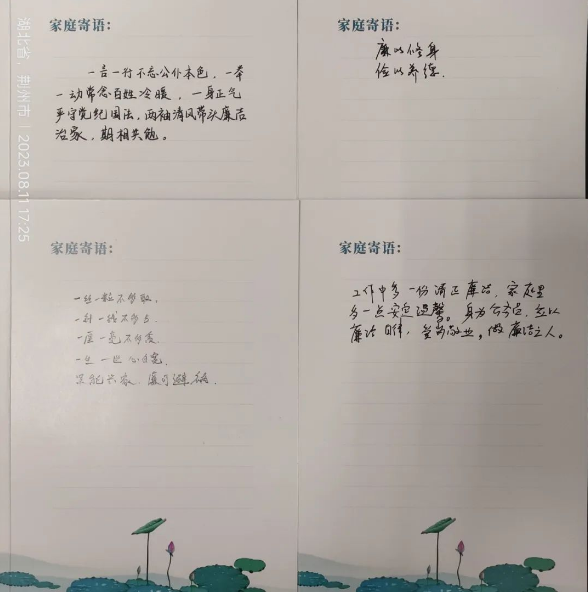 湖北省，荆州市 | 2023.08.11 17:25
家庭寄语：
一言一行不忘公仆本色，一举
一动常念百姓冷暖，一身正气
严守党纪国法，两袖清风带头廉洁
治家，期相共勉。
家庭寄语：
廉以修身
俭以养德.
家庭寄语：
一丝一粒不多取，
一针一线不多占
一厘一毫不
一生一世
家庭寄语：
工作中多一份清正廉洁，家庭里
多一点安定温馨。身为公务员，应以
廉洁自律，爱岗敬业，做廉洁之人。